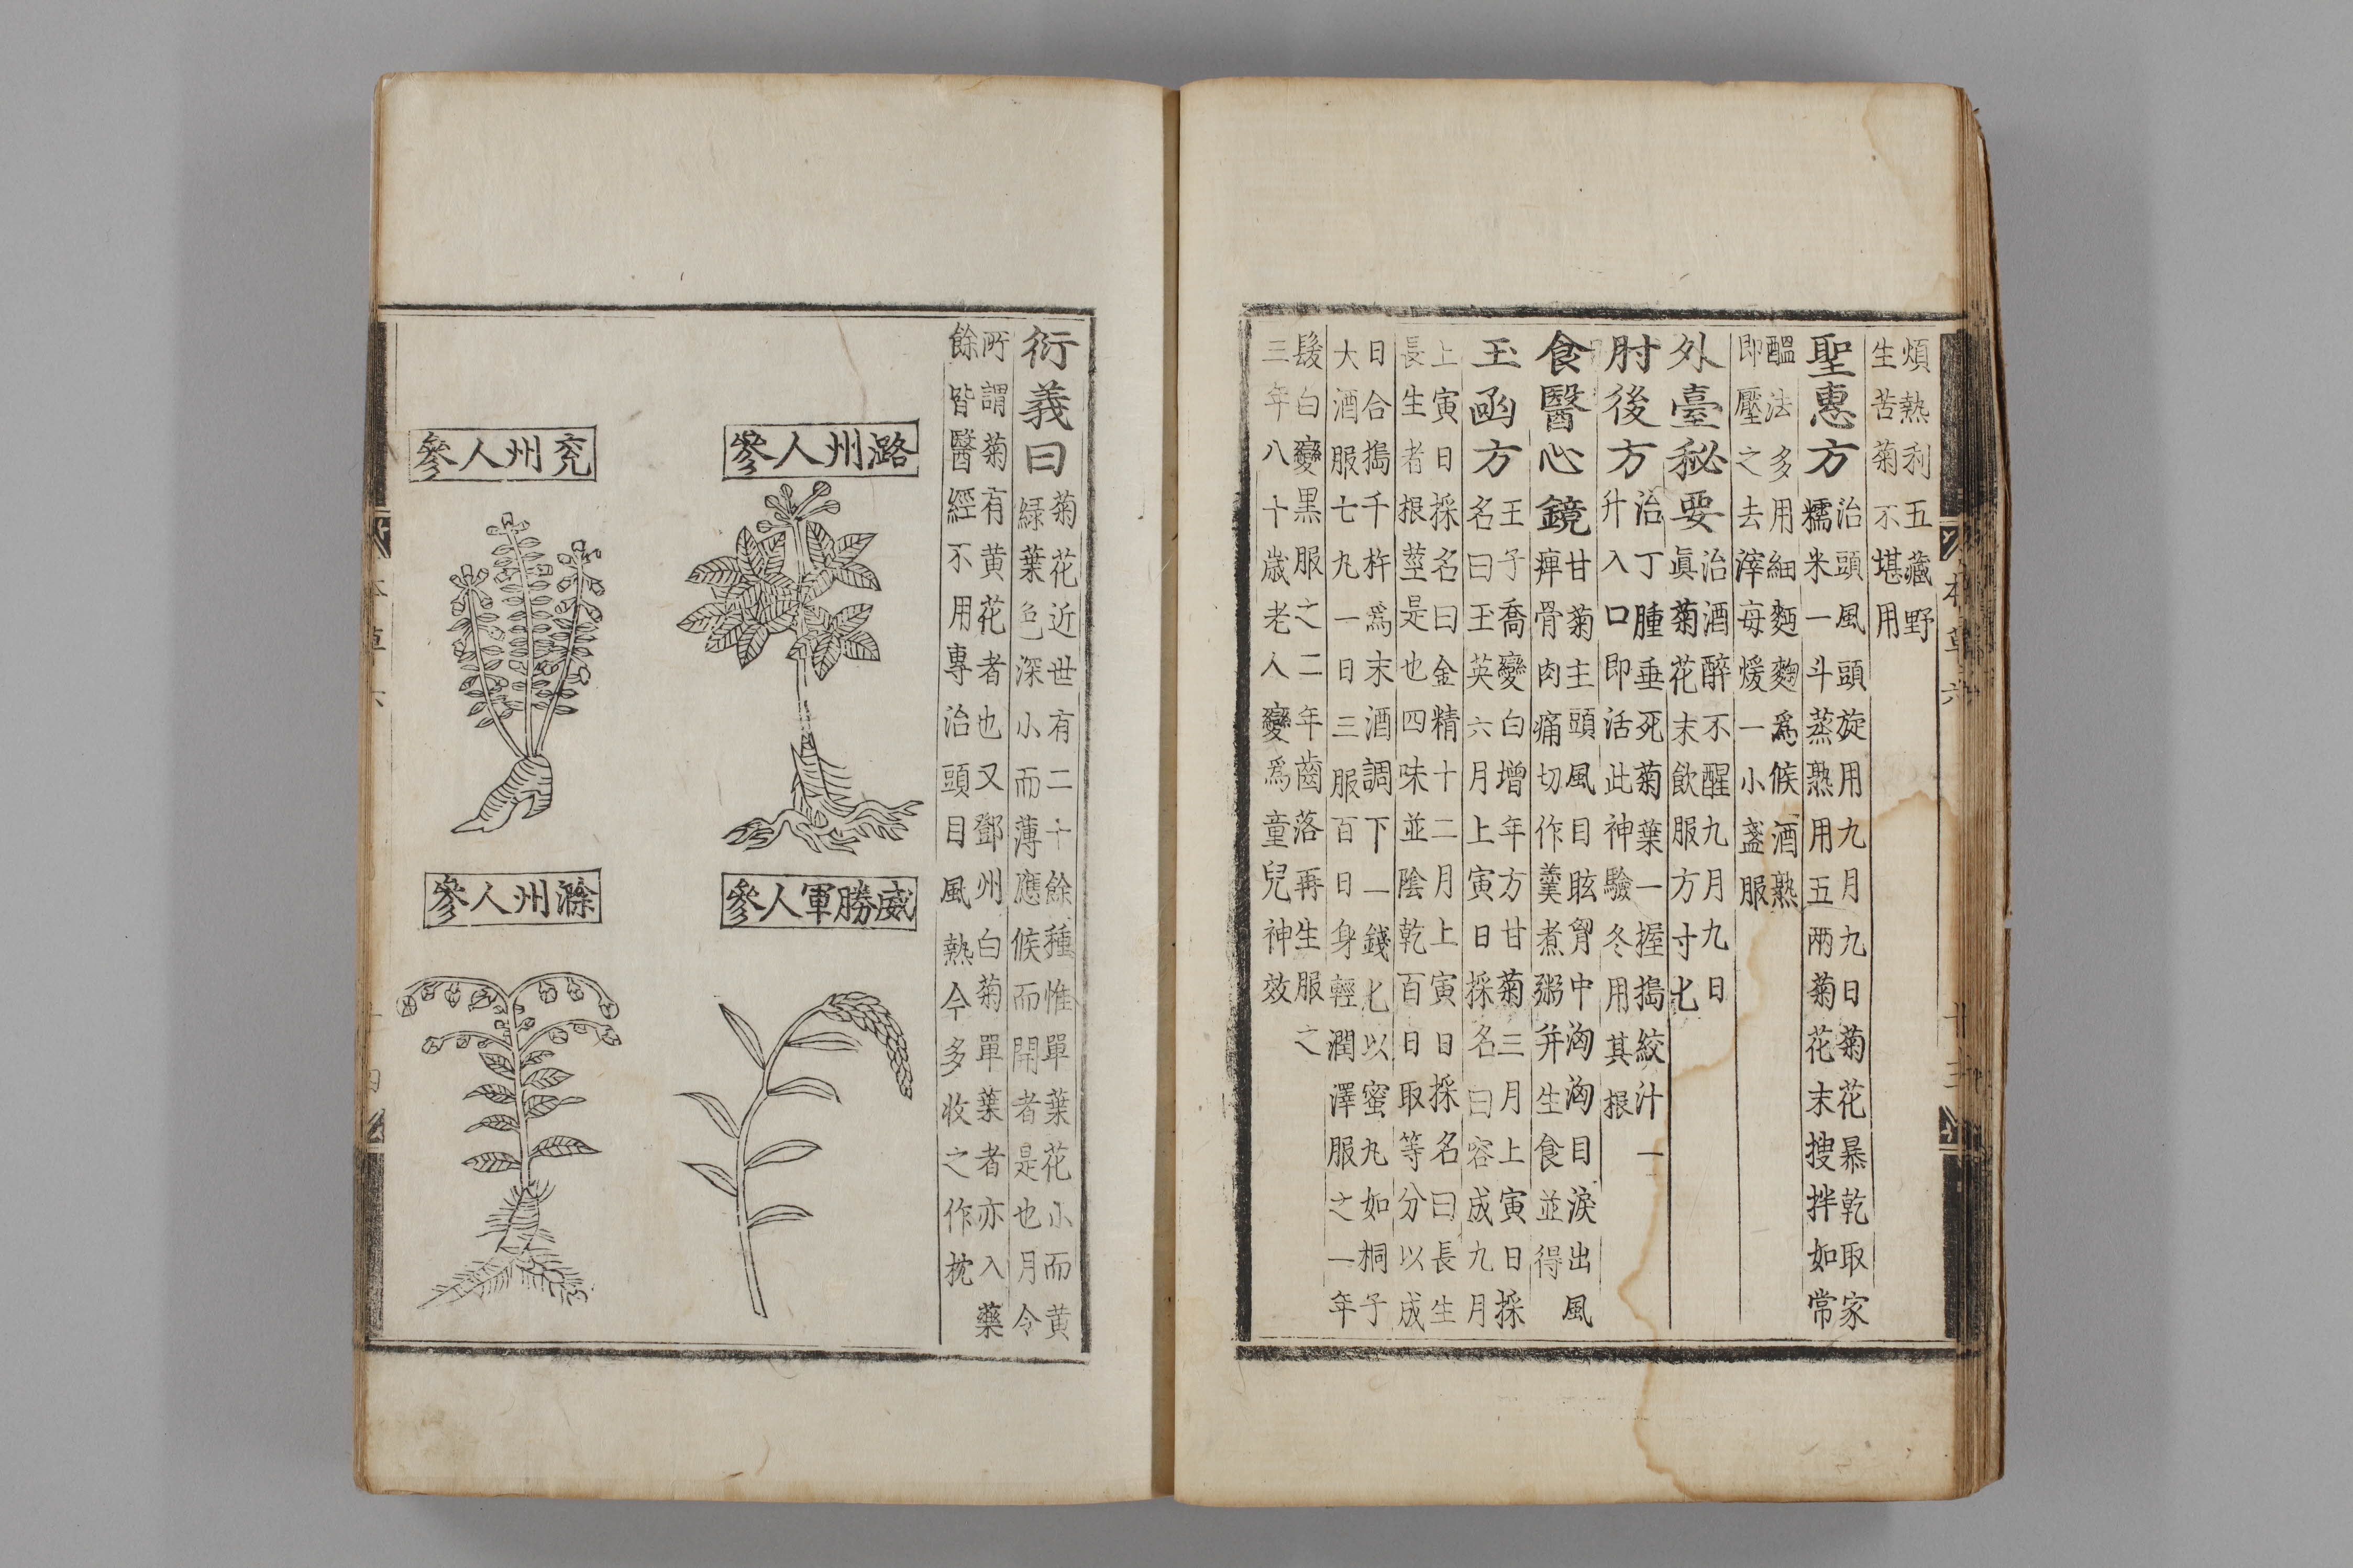 煩熱利五藏野
生苦菊不堪用
聖惠方
治頭風頭旋用九月九日菊花暴乾取家
糯米一斗蒸熟用五兩菊花末搜拌如常
醞法多用細麪麴爲候酒熟
即壓之去滓每煖一小盞服
外臺秘要
治酒醉不醒九月九日
眞菊花末飲服方寸匕
肘後方
治丁腫垂死菊葉一握搗絞汁一
升入口即活此神驗冬用其根
食醫心鏡
甘菊主頭風目眩胷中洶洶目淚出風
痺骨肉痛切作羹煮粥并生食並得
玉函方
王子喬變白增年方甘菊三月上寅日採
名曰玉英六月上寅日採名曰容成九月
上寅日採名曰金精十二月上寅日採名曰長生
長生者根莖是也四味並陰乾百日取等分以成
日合搗千杵爲末酒調下一錢匕以蜜丸如桐子
大酒服七九一日三服百日身輕潤澤服之一年
髮白變黑服之二年齒落再生服之
三年八十歲老人變爲童兒神效
本草六
十三
衍義曰
菊花近世有二十餘種惟單葉花小而黄
緑葉色深小而薄應候而開者是也月令
所謂菊有黄花者也又鄧州白菊單葉者亦入藥
餘皆醫經不用專治頭目風熱今多收之作枕
潞州人參
兖州人參
威勝軍人參
滁州人參